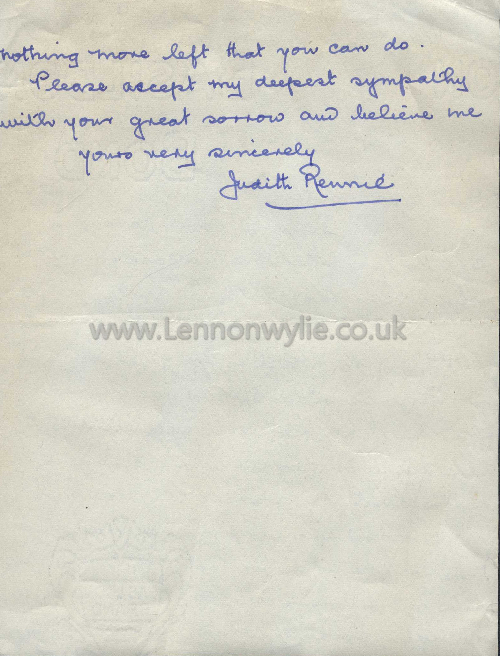 nothing more left that you can do.
Please accept my deepest sympathy
with your great sorrow and believe me
yours very sincerely
Judith Rennie
www.Lennonwylie.co.uk